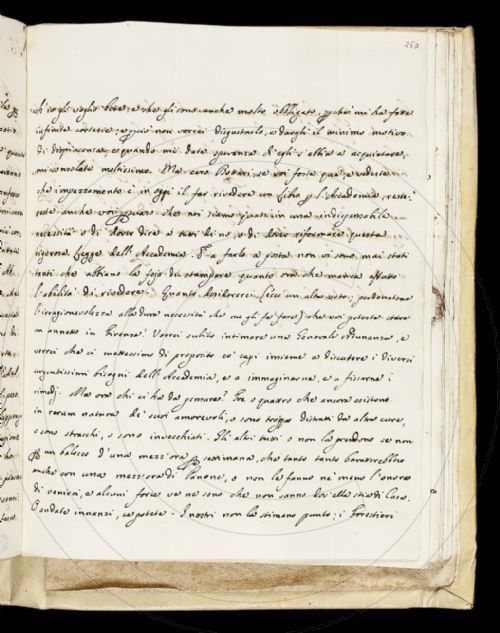 250
ch'io gli voglio bene, e che gli sono anche molto obbligato, perchè mi ha fatte
infinite cortesie, e però non vorrei disgustarlo, e dargli il minimo motivo
di dispiacenza, e quando mi date speranza ch'egli s'abbia a acquietare,
mi consolate moltissimo. Ma caro Bottari, se voi foste qua, e vedeste
che impazzamento è in oggi il far rivedere un libro per l'Accademia, reste-
reste anche voi persuaso che noi siamo quasi in una indispensabile
necessità o di dover dire a tutti di no, o di dover riformare questa
Legge dell'Accademia. E a farlo a posta non vi sono mai stati
tanti che abbiano la foja di stampare quanto ora che manca affatto
l'abilità di rivedere. Quanto desidererei (ecco un altro voto; perdonatene
l'irragionevolezza alla dura necessità che me gli fa fare) che voi poteste stare
un annetto in Firenze! Vorrei subito intimare una Generale Adunanza, e
vorrei che ci mettessimo di proposito co' capi insieme a discutere i diversi
urgentissimi bisogni dell'Accademia, e a immaginarne, e a fissarne i
rimedj. Ma ora chi ci ha da pensare? Tre o quattro che ancora esistono
in rerum natura de' suoi amorevoli, o sono troppo distratti da altre cure,
o sono stracchi, o sono invecchiati. Gli altri tutti o non la prendono se non
per un balocco d'una mezz'ora per settimana, che tanto tanto baratterebbero
anche con una mezz'ora di , o non le fanno nè meno l'onore
di venirci, e alcuni forse ve ne sono che non sanno dov'ella stia di casa.
E andate innanzi, se potete. I nostri non la stimano punto; i Forestieri